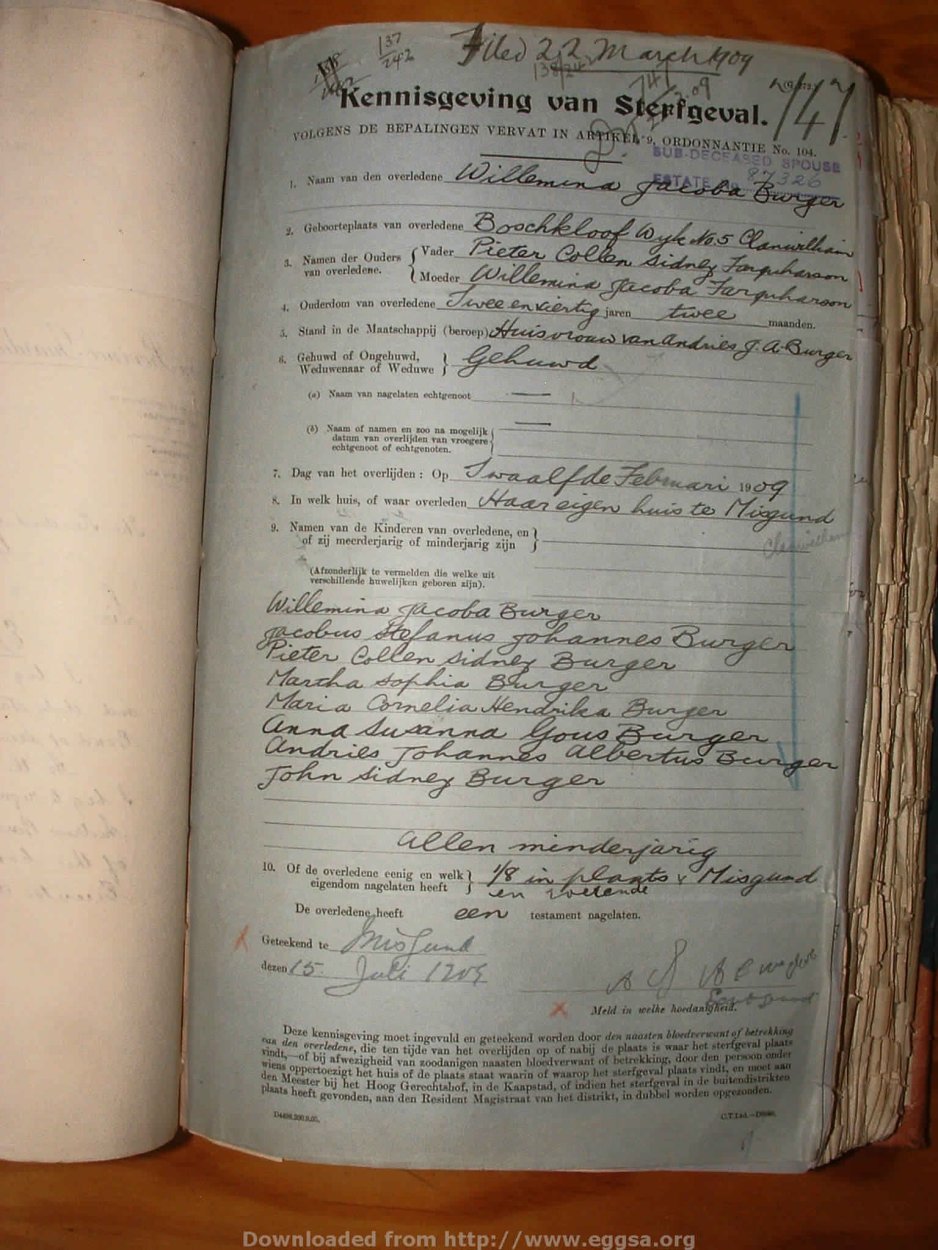 Filed 22 March 1909
137
242
747
Kennisgeving van Sterfgeval.
VOLGENS DE BEPALINGEN VERVAT IN ARTIKEL 9, ORDONNANTIE No. 104.
SUB-DECEASED SPOUSE
ESTATE 87326
1. Naam van den overledene Willemina Jacoba Burger
2. Geboorteplaats van overledene Boschkloof Wyk No 5 Clanwilliam
3. Namen der Ouders van overledene. { Vader Pieter Collen Sidney Farquharson
Moeder Willemina Jacoba Farquharson
4. Ouderdom van overledene Twee en viertig jaren twee maanden.
5. Stand in de Maatschappij (beroep) Huisvrouw van Andries J. A. Burger
6. Gehuwd of Ongehuwd, Weduwenaar of Weduwe } Gehuwd
(a) Naam van nagelaten echtgenoot —
(b) Naam of namen en zoo na mogelijk —
datum van overlijden van vroegere
echtgenoot of echtgenoten.
7. Dag van het overlijden: Op Twaalfde Februari 1909
8. In welk huis, of waar overleden Haar eigen huis te Misgund
Clanwilliam
9. Namen van de Kinderen van overledene, en
of zij meerderjarig of minderjarig zijn
(Afzonderlijk te vermelden die welke uit
verschillende huwelijken geboren zijn).
Willemina Jacoba Burger
Jacobus Stefanus Johannes Burger
Pieter Collen Sidney Burger
Martha Sophia Burger
Maria Cornelia Hendrika Burger
Anna Susanna Gous Burger
Andries Johannes Albertus Burger
John Sidney Burger
Allen minderjarig
10. Of de overledene eenig en welk eigendom nagelaten heeft } 1/8 in plaats Misgund
en roerende
De overledene heeft een testament nagelaten.
Geteekend te Misgund
dezen 15 Juli 1909
Meld in welke hoedanigheid.
Deze kennisgeving moet ingevuld en geteekend worden door den naasten bloedverwant of betrekking
van den overledene, die ten tijde van het overlijden op of nabij de plaats is waar het sterfgeval plaats
vindt,—of bij afwezigheid van zoodanigen naasten bloedverwant of betrekking, door den persoon onder
wiens oppertoezigt het huis of de plaats staat waarin of waarop het sterfgeval plaats vindt, en moet aan
den Meester bij het Hoog Gerechtshof, in de Kaapstad, of indien het sterfgeval in de buitendistrikten
plaats heeft gevonden, aan den Resident Magistraat van het distrikt, in dubbel worden opgezonden.
Downloaded from http://www.eggsa.org